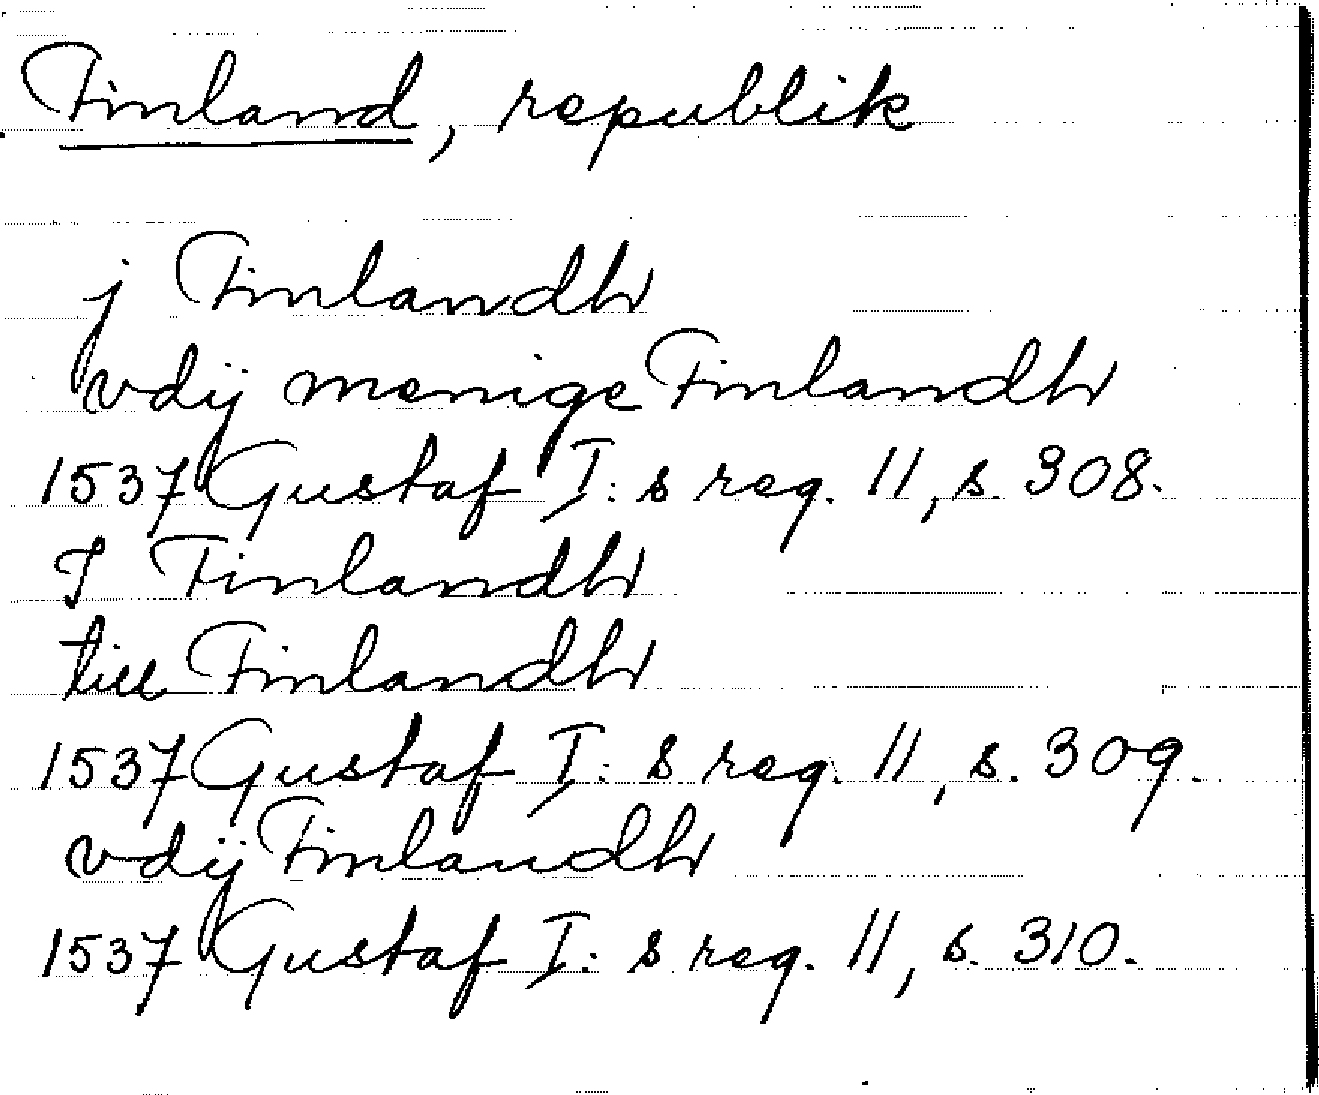 Finland, republik
j Finlandh
vdij menige Finlandh
1537 Gustaf I:s reg. 11, s. 308.
I Finlandh
till Finlandh
1537 Gustaf I:s reg. 11, s. 309.
vdij Finlandh
1537 Gustaf I:s reg. 11, s. 310.